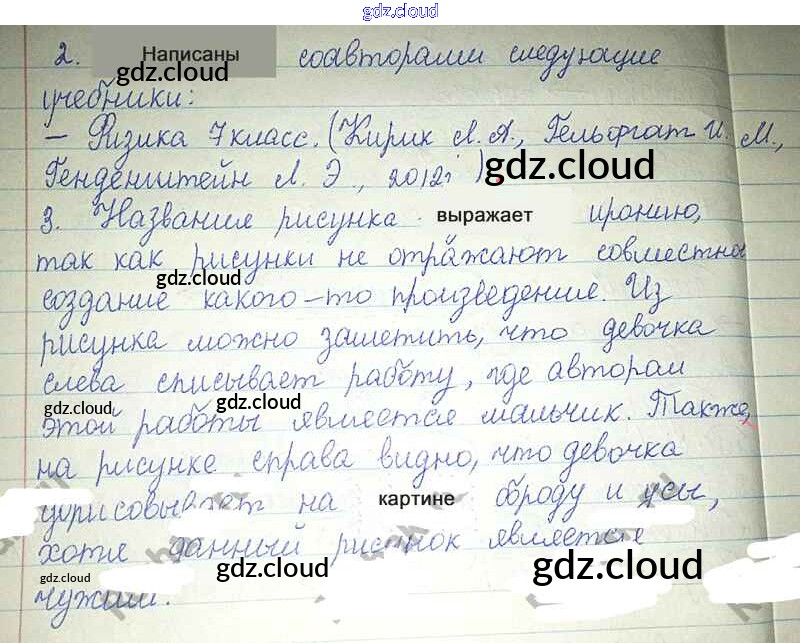 gdz.cloud
2. Написаны соавторами следующие
gdz.cloud
учебники:
– Физика 7 класс. (Кирик Л. А., Гельфгат И. М.,
gdz.cloud
Генденштейн Л. Э., 2012г)
3. Название рисунка выражает иронию,
так как рисунки не отражают совместно
gdz.cloud
создание какого-то произведения. Из
рисунка можно заметить, что девочка
слева списывает работу, где автором
gdz.cloud gdz.cloud
этой работы является мальчик. Также,
на рисунке справа видно, что девочка
дорисовывает на картине бороду и усы,
хотя данный рисунок является
gdz.cloud gdz.cloud gdz.cloud
чужим.